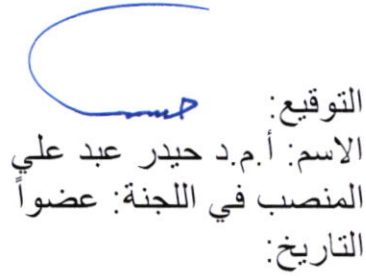 التوقيع:
الاسم: أ.م.د حيدر عبد علي
المنصب في اللجنة: عضواً
التاريخ: